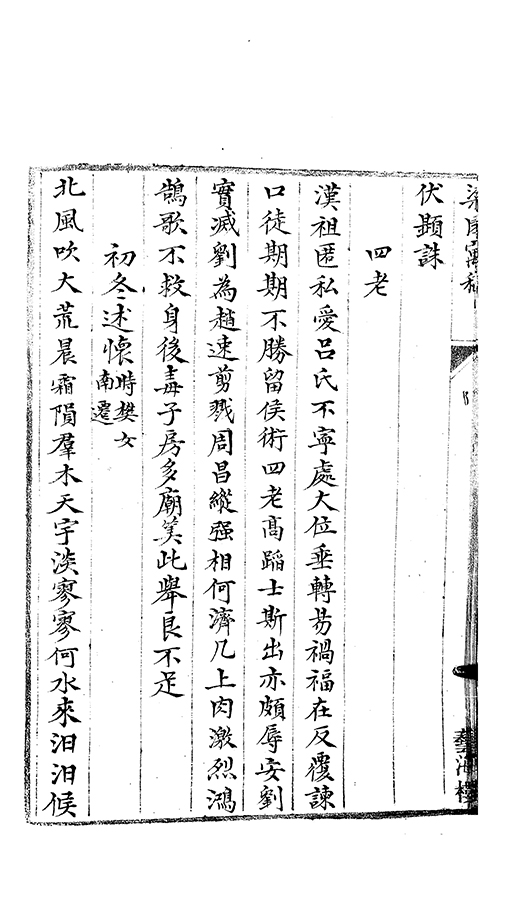 伏顯誅
四老
漢祖匿私愛呂氏不寧處大位垂轉易禍福在反覆諫
口徒期期不勝留侯術四老高蹈士斯出亦頗辱安劉
實滅劉為趙速剪戮周昌縱强相何濟几上肉激烈鴻
鵠歌不救身後毒子房多廟筭此舉良不足
初冬述懷時樊女南遷
北風吹大荒晨霜隕羣木天宇淡寥寥何水來汨汨候